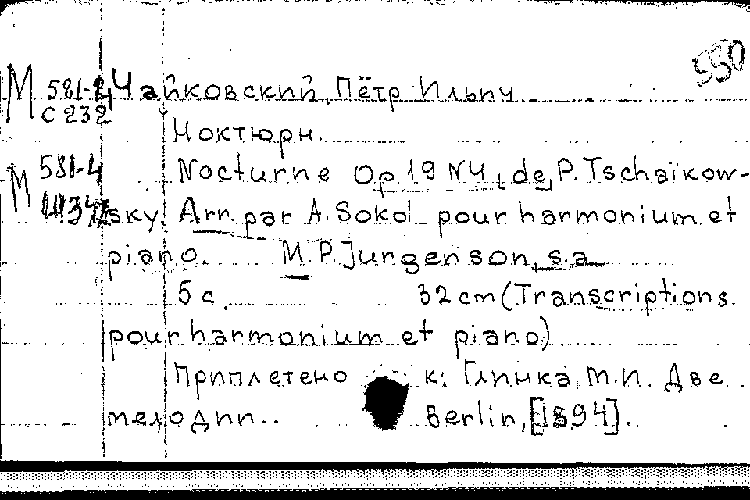 550
М 581-2 Чайковский, Пётр Ильич
С 232
Ноктюрн.
М 581-4 Nocturne Op 19 N4, de P. Tschaïkow-
sky. Arr. par A. Sokol pour harmonium et
piano. M. P. Jurgenson, s.a.
5 с. 32 cm (Transcriptions
pour harmonium et piano)
Приплетено к: Глинка, М.И. Две
мелодии.. Berlin, [1894].